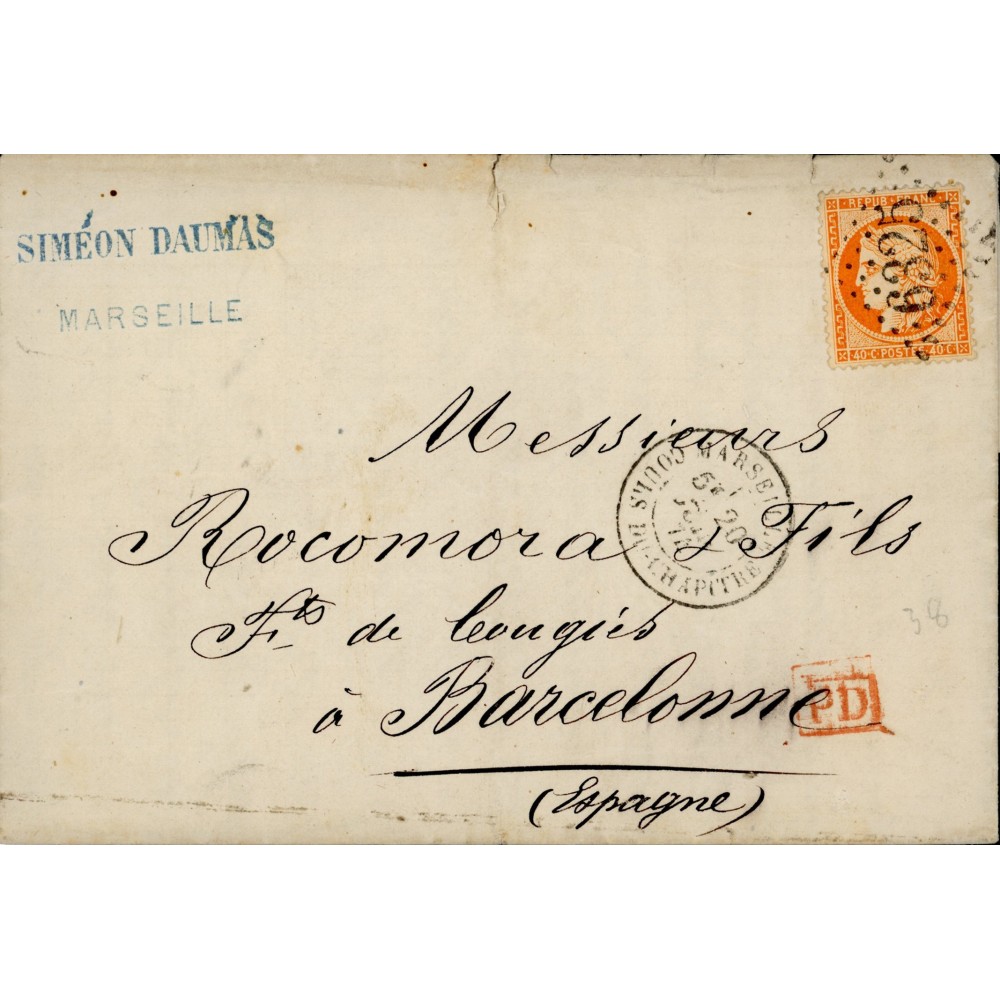 SIMÉON DAUMAS
MARSEILLE
REPUB. FRANC.
40·C·POSTES·40·C
Messieurs
Rocomora & Fils
Fts de bougies
à Barcelonne
(Espagne)
MARSEILLE
COURS DU CHAPITRE
5E
20
PD
38